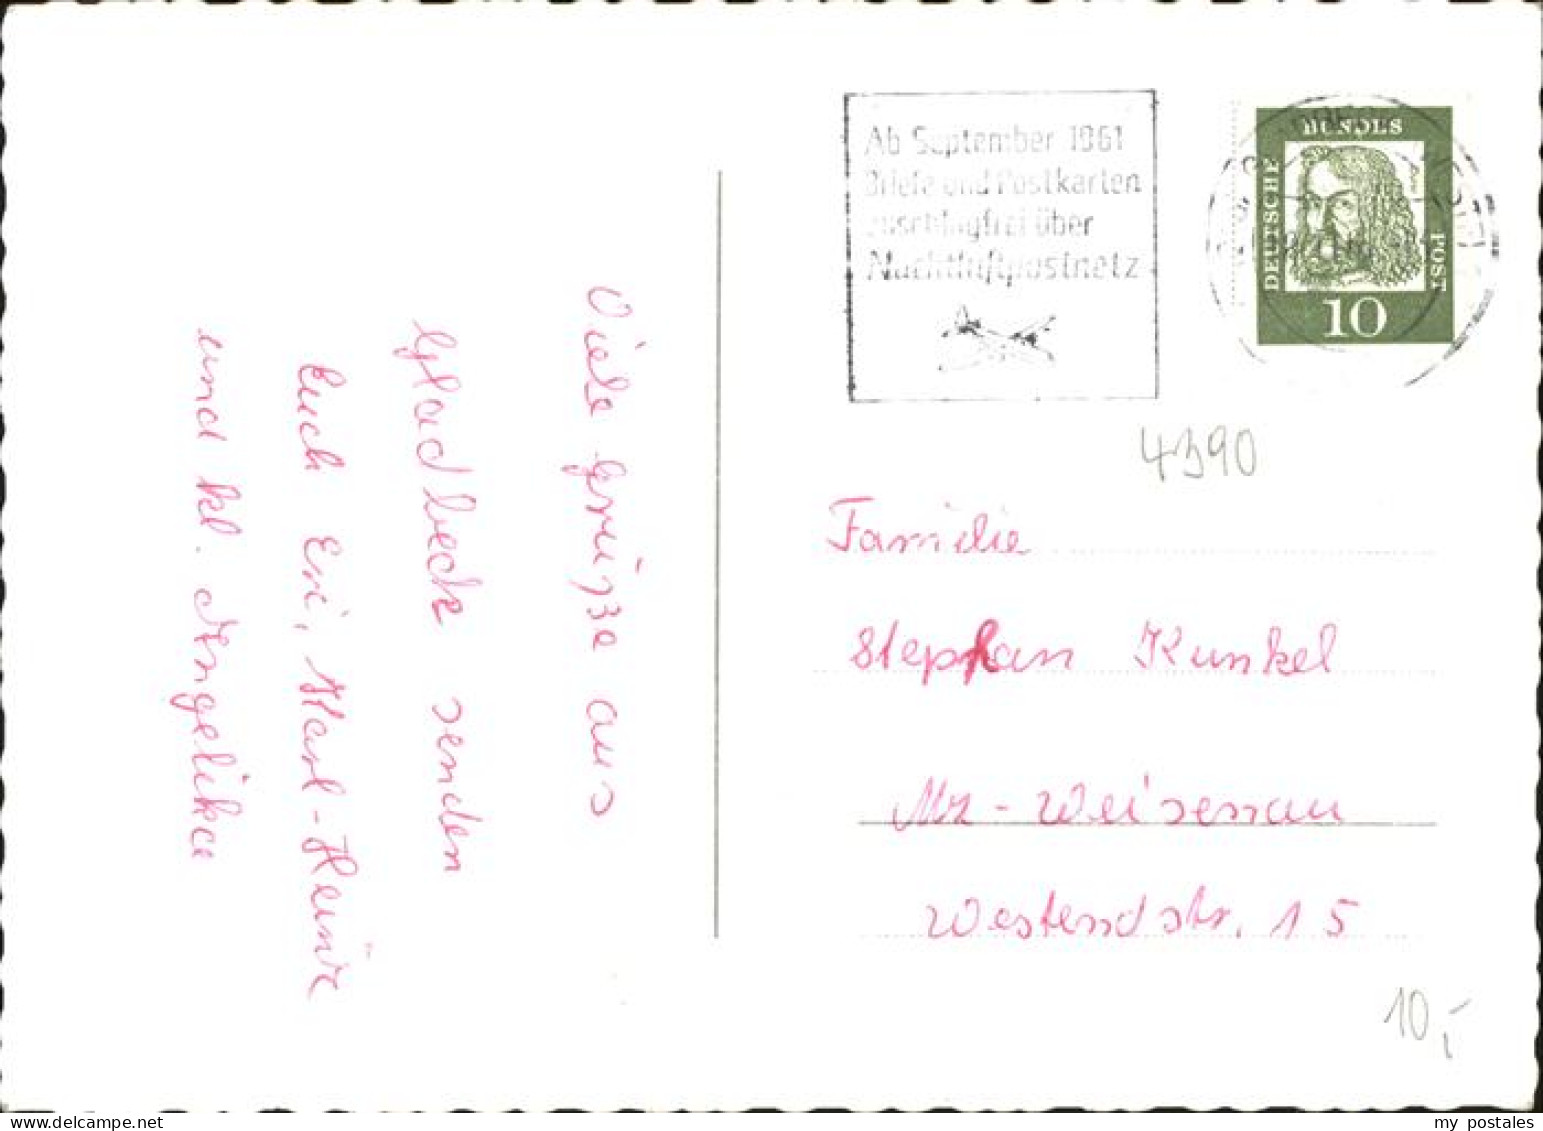 Viele Grüße aus
Gladbeck senden
Euch Eri, Karl-Heinz
und kl. Angelika
Ab September 1961
Briefe und Postkarten
zuschlagfrei über
Nachtluftpostnetz
DEUTSCHE
BUNDES
POST
10
4390
Familie
Stephan Kunkel
Mz - Weisenau
Westendstr. 15
10,-
my postales